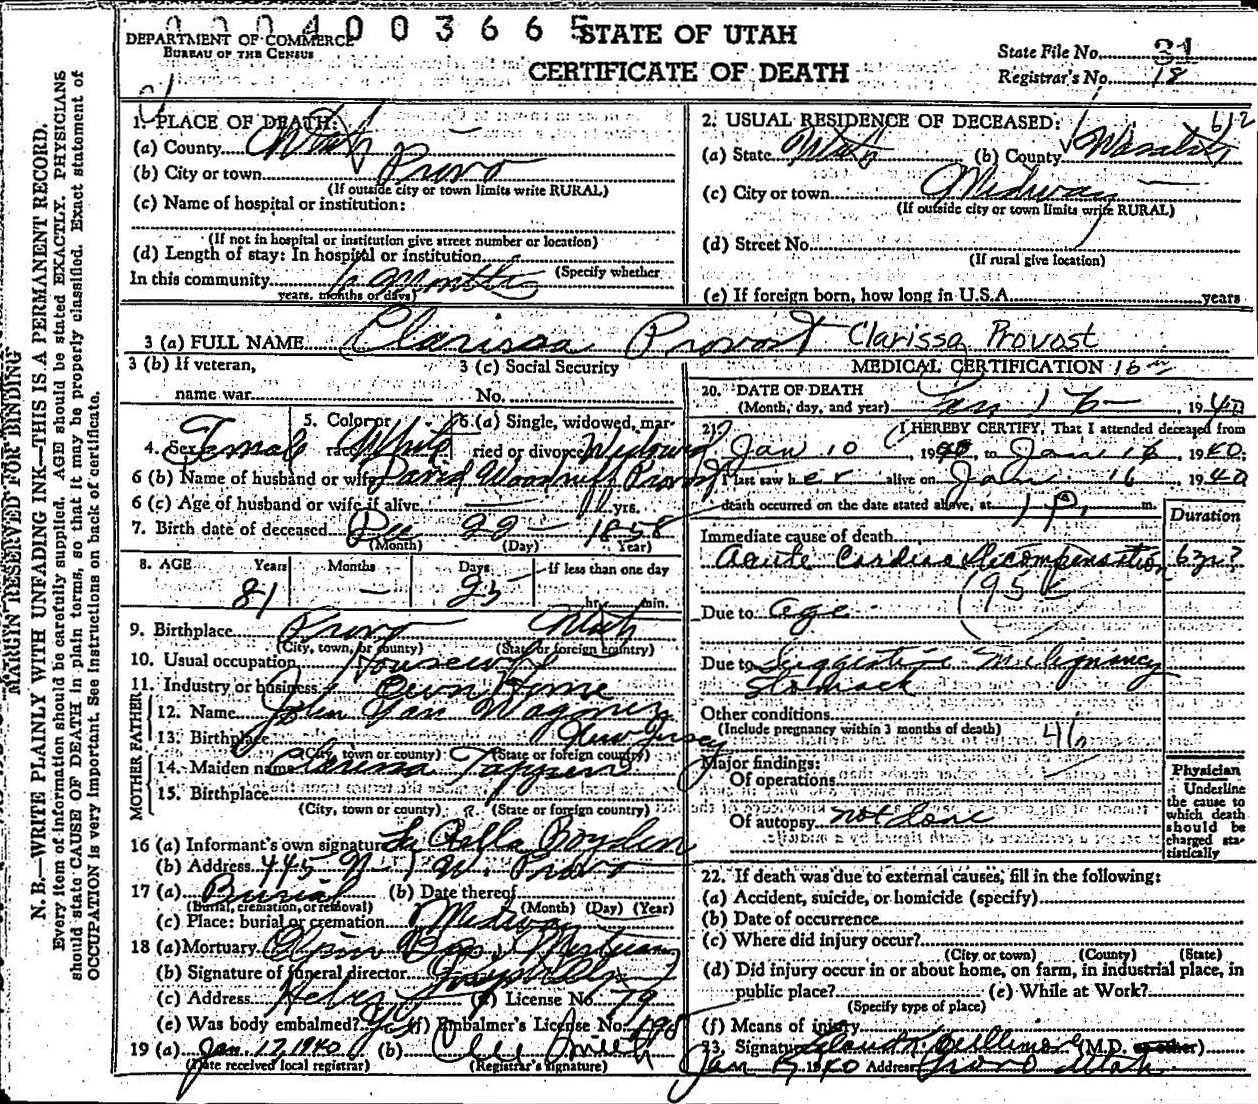 0004003665
STATE OF UTAH
DEPARTMENT OF COMMERCE
BUREAU OF THE CENSUS
CERTIFICATE OF DEATH
State File No. 31
Registrar's No. 18
MARGIN RESERVED FOR BINDING
N. B.—WRITE PLAINLY WITH UNFADING INK—THIS IS A PERMANENT RECORD.
Every item of information should be carefully supplied. AGE should be stated EXACTLY. PHYSICIANS
should state CAUSE OF DEATH in plain terms, so that it may be properly classified. Exact statement of
OCCUPATION is very important. See instructions on back of certificate.
1. PLACE OF DEATH:
(a) County Utah
(b) City or town Provo
(If outside city or town limits write RURAL)
(c) Name of hospital or institution:
(If not in hospital or institution give street number or location)
(d) Length of stay: In hospital or institution
(Specify whether
In this community months
years, months or days)
2. USUAL RESIDENCE OF DECEASED: 612
(a) State Utah (b) County Wasatch
(c) City or town Midway
(If outside city or town limits write RURAL)
(d) Street No.
(If rural give location)
(e) If foreign born, how long in U.S.A. years
3 (a) FULL NAME Clarissa Provost Clarissa Provost
3 (b) If veteran,
name war
3 (c) Social Security
No.
4. Sex Female
5. Color or race White
6. (a) Single, widowed, married or divorced Widowed
6 (b) Name of husband or wife David Woodruff Provost
6 (c) Age of husband or wife if alive yrs.
7. Birth date of deceased Dec 22 1858
(Month) (Day) (Year)
8. AGE Years Months Days If less than one day
81 — 25 hr. min.
9. Birthplace Provo Utah
(City, town, or county) (State or foreign country)
10. Usual occupation Housewife
11. Industry or business Own Home
FATHER
12. Name John Van Wagoner
13. Birthplace New Jersey
(City, town or county) (State or foreign country)
MOTHER
14. Maiden name Clarissa Tappen
15. Birthplace
(City, town or county) (State or foreign country)
16 (a) Informant's own signature Boyden
(b) Address 445 N. W. Provo
17 (a) Burial (b) Date thereof
(Burial, cremation, or removal) (Month) (Day) (Year)
(c) Place: burial or cremation Midway
18 (a) Mortuary Olpin Bros. Mortuary
(b) Signature of funeral director
(c) Address Heber (d) License No. 79
(e) Was body embalmed? Yes (f) Embalmer's License No. 198
19 (a) Jan. 17, 1940 (b) Smith
(Date received local registrar) (Registrar's signature)
MEDICAL CERTIFICATION
20. DATE OF DEATH
(Month, day, and year) Jan 16 1940
21. I HEREBY CERTIFY, That I attended deceased from
Jan 10, 1940, to Jan 16, 1940;
I last saw her alive on Jan. 16 1940
death occurred on the date stated above, at 1 P. m.
Duration
Immediate cause of death
Acute Cardiac Decompensation 6 yr?
Due to age
Due to Suggestive Malignancy
Stomach
Other conditions
(Include pregnancy within 3 months of death)
Major findings:
Of operations
Of autopsy not done
Physician
Underline
the cause to
which death
should be
charged sta-
tistically
22. If death was due to external causes, fill in the following:
(a) Accident, suicide, or homicide (specify)
(b) Date of occurrence
(c) Where did injury occur?
(City or town) (County) (State)
(d) Did injury occur in or about home, on farm, in industrial place, in
public place? (e) While at Work?
(Specify type of place)
(f) Means of injury
23. Signature (M.D. or other)
Jan 17 1940 Address Provo Utah